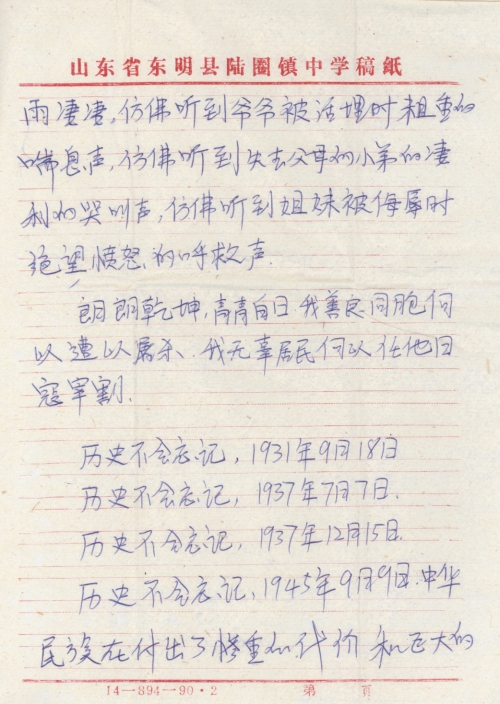 山东省东明县陆圈镇中学稿纸
雨凄凄,仿佛听到爷爷被活埋时粗重的
喘息声,仿佛听到失去父母的小弟的凄
利的哭叫声,仿佛听到姐妹被侮辱时
绝望愤怒的呼救声.
朗朗乾坤,青青白日.我善良同胞何
以遭以屠杀.我无辜居民何以任他日
寇宰割.
历史不会忘记,1931年9月18日
历史不会忘记,1937年7月7日.
历史不会忘记,1937年12月15日.
历史不会忘记,1945年9月9日.中华
民族在付出了惨重的代价和巨大的
14—894—90·2 第 页